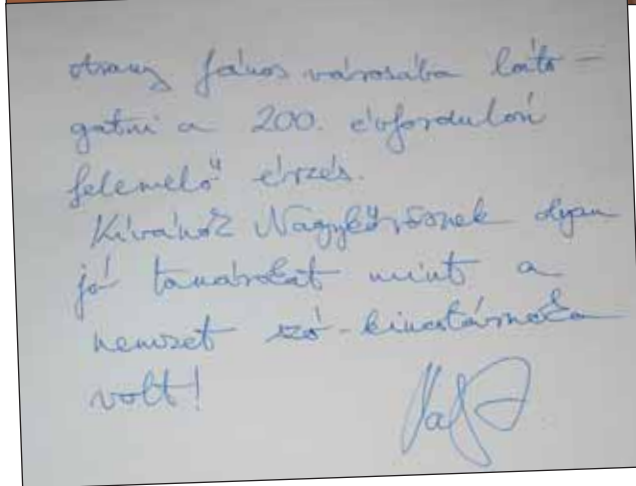 Arany János városába láto-
gatni a 200. évfordulón
felemelő érzés.
Kívánok Nagykőrösnek olyan
jó tanárokat mint a
nemzet szó-kincstárnoka
volt!